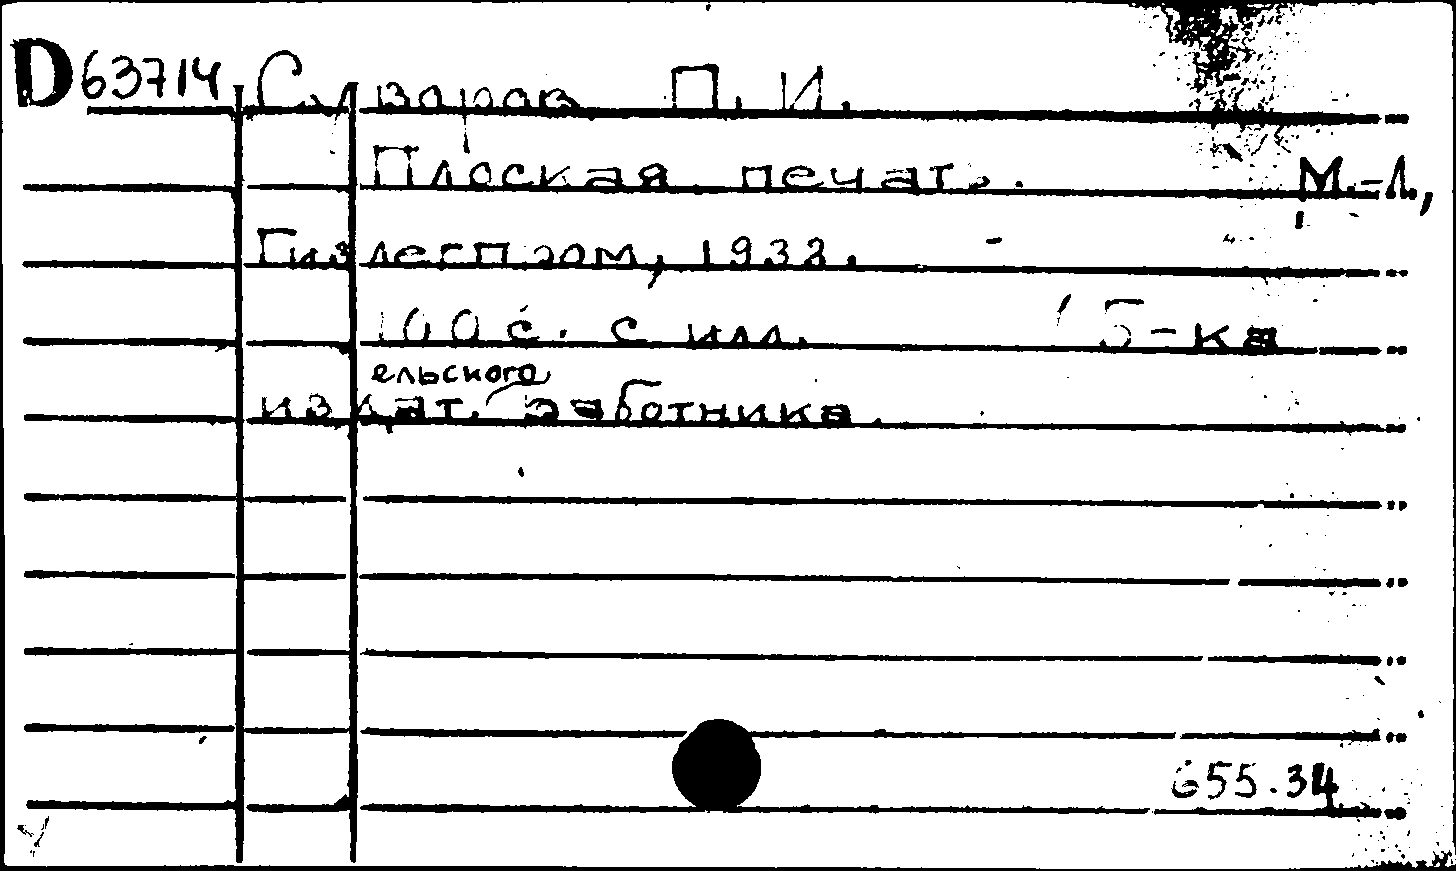 D63714 Суворов П. И.
Плоская печать. М.-Л.,
Гизлегпром, 1932.
100 с. с илл. (Б-ка
издательского работника.
655.34